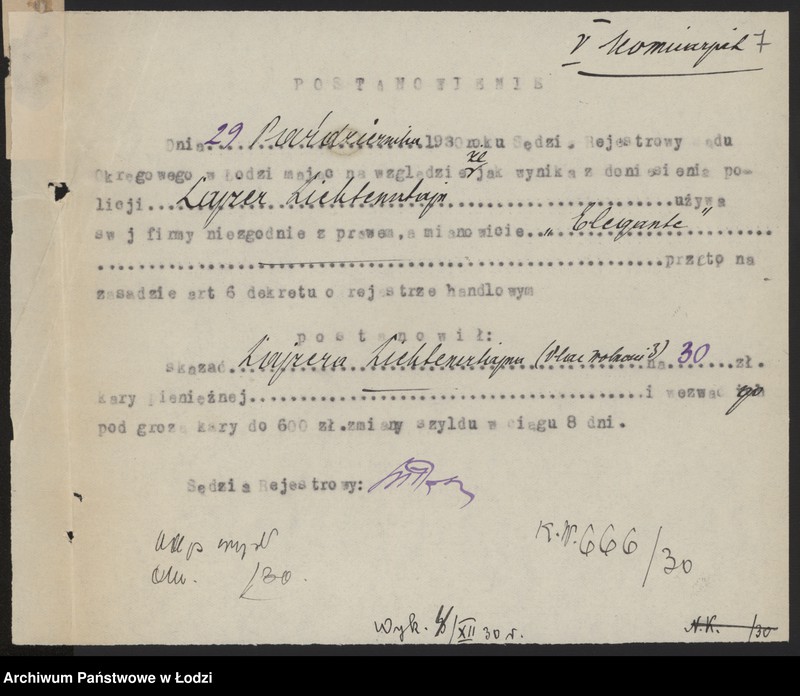 V Komisarjat 7
POSTANOWIENIE
Dnia 29 Października 1930 roku Sędzia Rejestrowy Sądu
Okręgowego w Łodzi mając na względzie że jak wynika z doniesienia po-
licji...Lajzer Lichtensztajn...używa
sw j firmy niezgodnie z prawem, a mianowicie... „Elegante”
...przeto na
zasadzie art 6 dekretu o rejestrze handlowym
postanowił:
skazać Lajzera Lichtensztajna (Plac Wolności 3) na 30 zł.
kary pieniężnej...i wezwać go
pod grozą kary do 600 zł. zmiany szyldu w ciągu 8 dni.
Sędzia Rejestrowy:
K.N. 666/30
dn. /30.
Wyk. /XII 30 r.
N.K. /30
Archiwum Państwowe w Łodzi